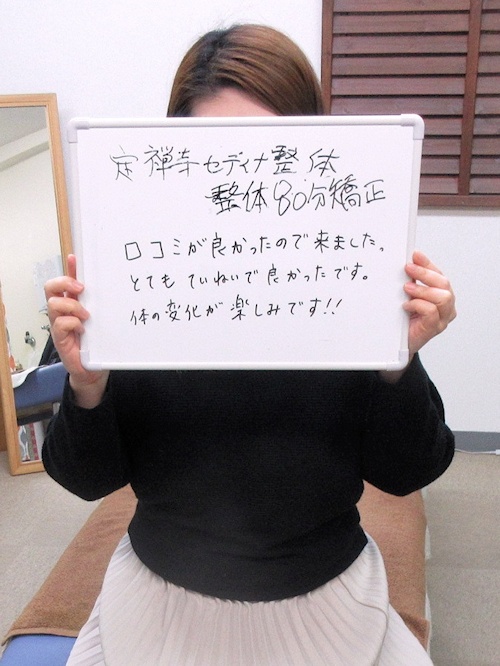 定禅寺セディナ整体
整体80分矯正
口コミが良かったので来ました。
とてもていねいで良かったです。
体の変化が楽しみです!!